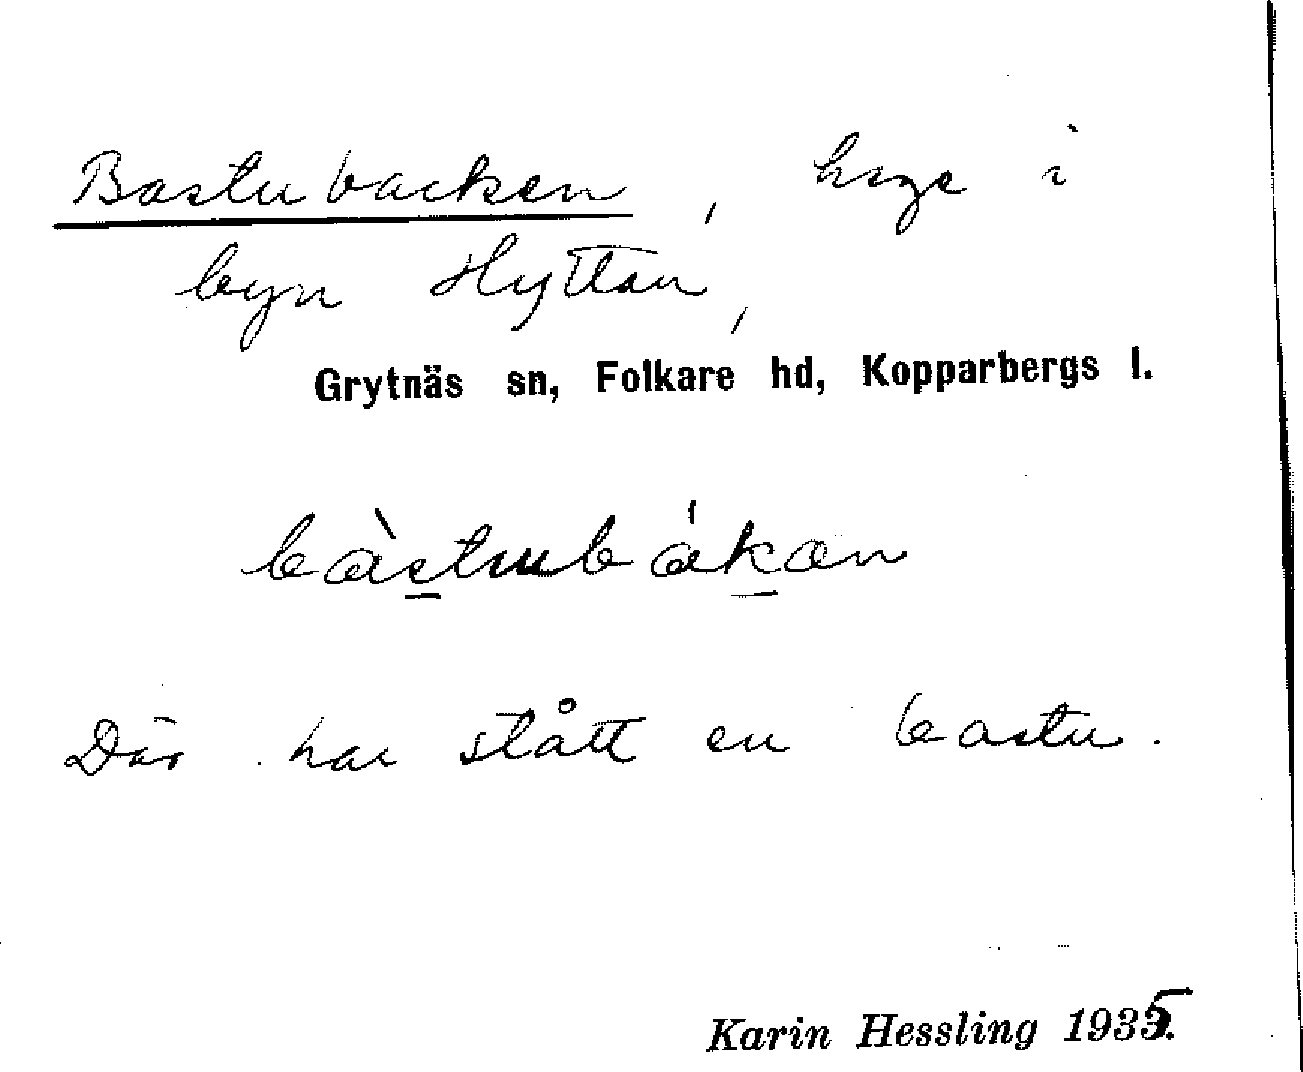 Bastubacken, hage i
byn Hyttan,
Grytnäs sn, Folkare hd, Kopparbergs l.
bàstubákan
Där har stått en bastu.
Karin Hessling 1935.